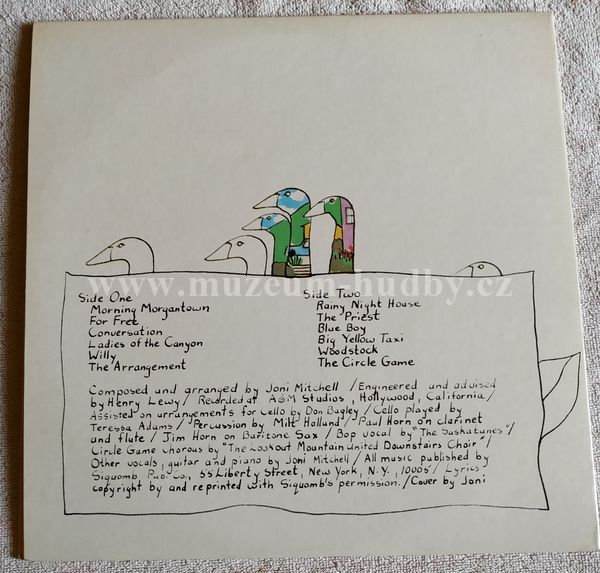 www.muzeum-hudby.cz
Side One
Morning Morgantown
For Free
Conversation
Ladies of the Canyon
Willy
The Arrangement
Side Two
Rainy Night House
The Priest
Blue Boy
Big Yellow Taxi
Woodstock
The Circle Game
Composed and arranged by Joni Mitchell / Engineered and advised
by Henry Lewy / Recorded at A&M Studios, Hollywood, California /
Assisted on arrangements for Cello by Don Bagley / Cello played by
Teressa Adams / Percussion by Milt Holland / Paul Horn on clarinet
and flute / Jim Horn on Baritone Sax / Bop vocal by "The Saskatunes" /
Circle Game chorous by "The Lookout Mountain United Downstairs Choir" /
Other vocals, guitar and piano by Joni Mitchell / All music published by
Siquomb Pub. Co., 55 Liberty Street, New York, N.Y., 10005 / Lyrics
copyright by and reprinted with Siquomb's permission. / Cover by Joni